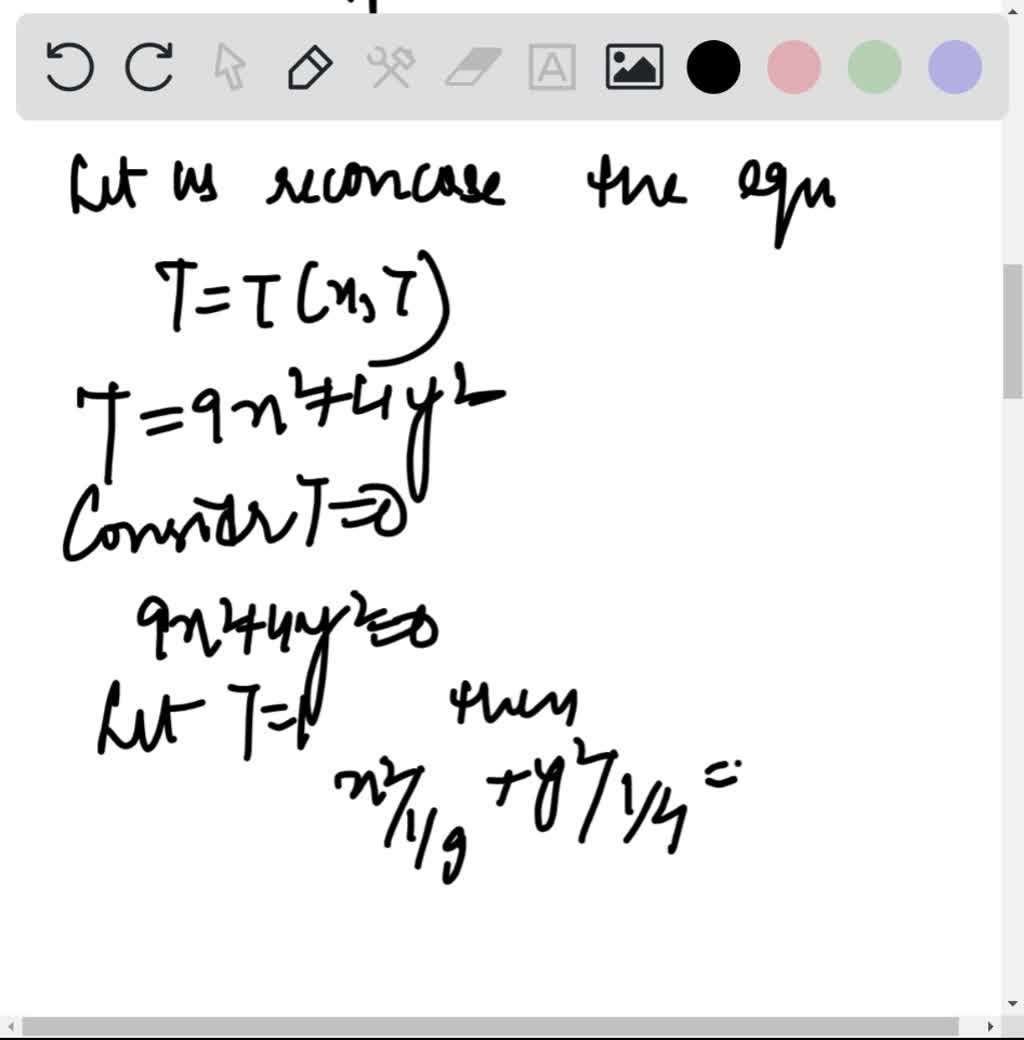 Let us reconcase the eqn
T = T(x, T)
T = 9x² + 4y²
Consider T = 0
9x² + 4y² = 0
Let T = 1 then
x²/1/9 + y²/1/4 =